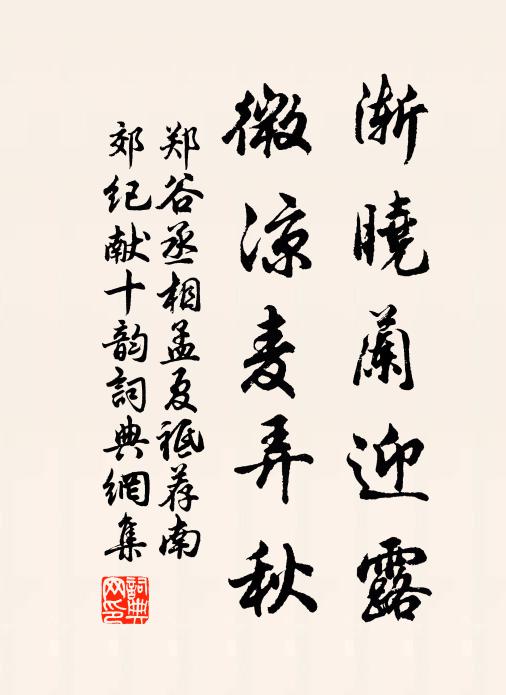 渐曉蘭迎露
微涼麦弄秋
郑谷丞相孟夏祗荐南
郊纪献十韵詞典網集